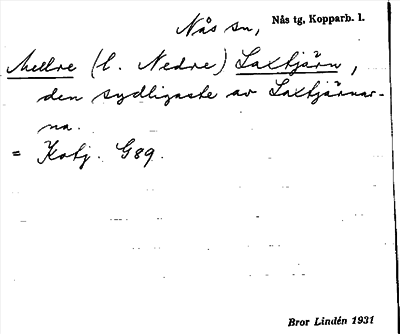 Nås sn, Nås tg, Kopparb. l.
Mellre (l. Nedre) Laxtjärn,
den sydligaste av Laxtjärnar-
na.
= Kartj. G89.
Bror Lindén 1931